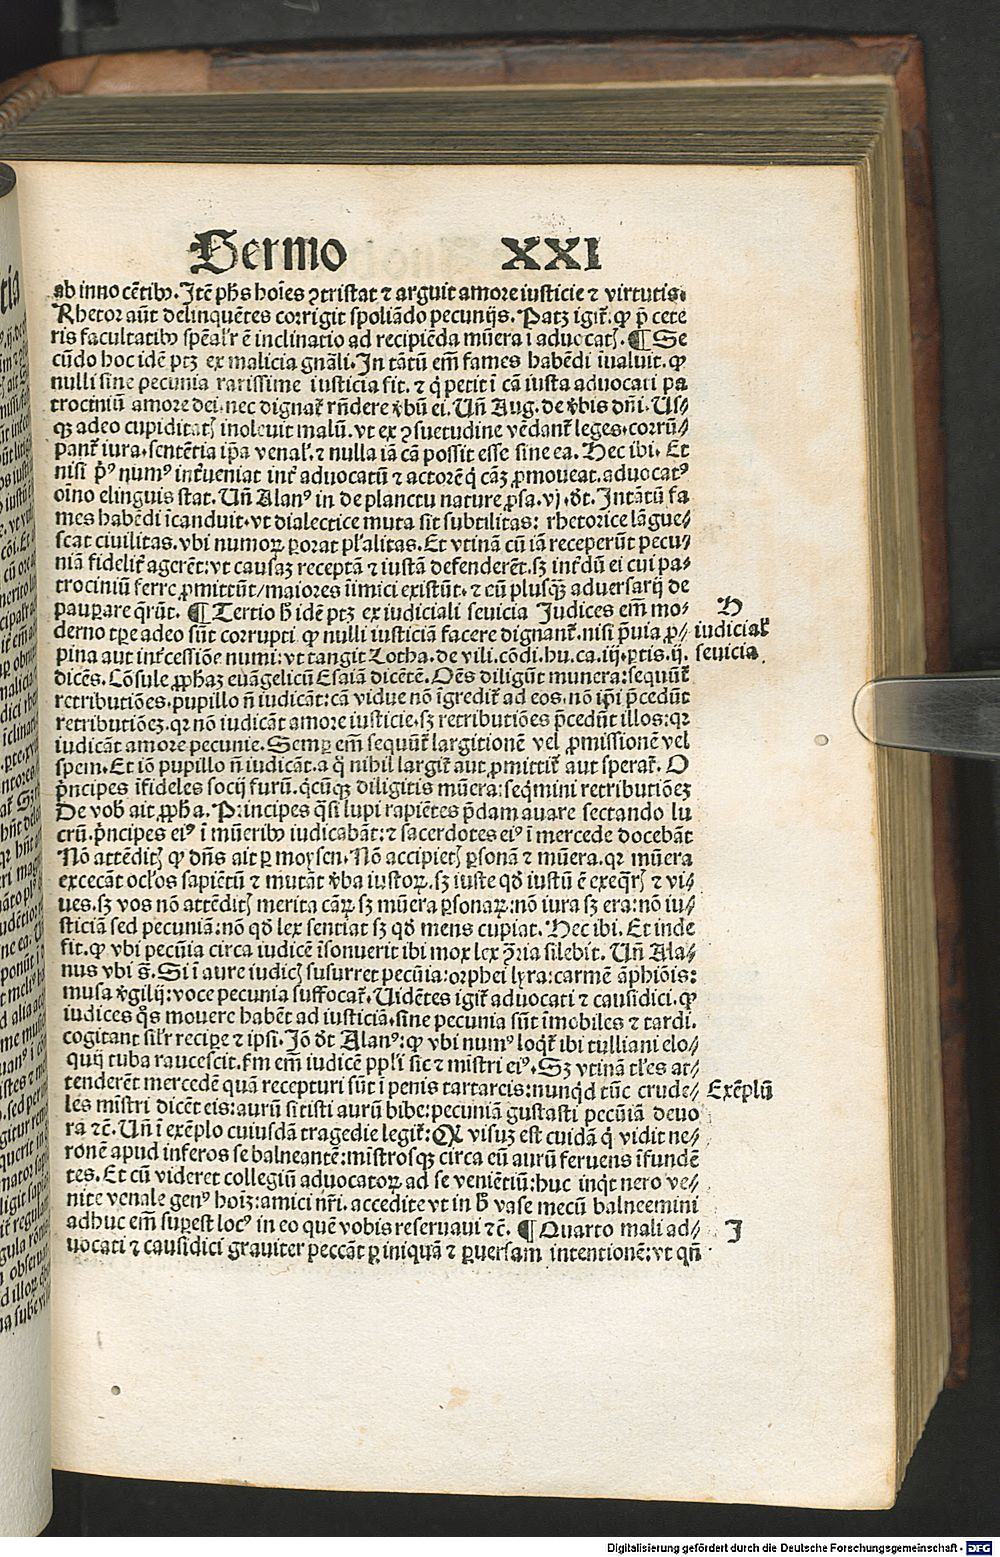 Sermo XXI
ab innocẽtibꝰ. Itẽ pħs hoĩes ꝯtristat ⁊ arguit amore iusticie ⁊ virtutis.
Rhetor aũt delinquẽtes corrigit spoliãdo pecunijs. Patꝫ igiť. ꝙ p̃ cete
ris facultatibꝰ spẽal'r ẽ inclinatio ad recipiẽda mũera i aduocatꝭ. ¶ Se
cũdo hoc idẽ ptꝫ ex malicia gnãli. In tãtũ em̃ fames habẽdi iualuit. ꝙ
nulli sine pecunia rarissime iusticia fit. ⁊ q̇ petit ĩ cã iusta aduocati pa
trociniũ amore dei. nec dignať rñdere v̾bũ ei. Uñ Aug. de v̾bis dñi. Us⸗
qꝫ adeo cupiditatꝭ inoleuit malũ. vt ex ꝯsuetudine vẽdanť leges. corrũ⸗
panť iura. sentẽtia ip̃a venal'. ⁊ nulla iã cã possit esse sine ea. Hec ibi. Et
nisi p̾ꝰ numꝰ inťueniat inť aduocatũ ⁊ actorẽ q̇ cãꝫ ꝓmoueat. aduocatꝰ
oĩno elinguis stat. Uñ Alanꝰ in de planctu nature ꝓsa. vj. ðt. In tãtũ fa
mes habẽdi ĩcanduit. vt dialectice muta sit subtilitas: rhetorice lãgue⸗
scat ciuilitas. vbi numoꝝ ꝑorat pl'alitas. Et vtinã cũ iã receperũt pecu⸗
niã fideliť agerẽt: vt causaꝫ receptã ⁊ iustã defenderẽt. sꝫ inťdũ ei cui pa⸗
trociniũ ferre ꝓmittũt/ maiores ĩimici existũt. ⁊ cũ plusqꝫ aduersarij de
pauꝑare q̃rũt. ¶ Tertio ħ idẽ ptꝫ ex iudiciali seuicia Iudices em̃ mo⸗
derno tp̃e adeo sũt corrupti ꝙ nulli iusticiã facere dignanť. nisi p̃uia ꝓ⸗
pina aut inťcessiõe numi: vt tangit Lotha. de vili. cõdi. hu. ca. iij. ꝑtis. ij.
H
iudicial'
seuicia.
dicẽs. Cõsule ꝓphaꝫ euãgelicũ Esaiã dicẽtẽ. Oẽs diligũt munera: sequũť
retributiões. pupillo ñ iudicãt: cã vidue nõ ĩgrediť ad eos. nõ ip̃i p̃cedũt
retributiõeꝫ. qꝛ nõ iudicãt amore iusticie. sꝫ retributiões p̃cedũt illos: qꝛ
iudicãt amore pecunie. Semꝑ em̃ sequũť largitionẽ vel ꝓmissionẽ vel
spem. Et iõ pupillo ñ iudicãt. a q̇ nihil largiť aut ꝓmittiť aut sperať. O
p̃ncipes ĩfideles socij furũ. qcũqꝫ diligitis mũera: seq̇mini retributiõeꝫ
De vob' ait ꝓpħa. Principes q̃si lupi rapiẽtes p̃dam auare sectando lu
crũ. p̃ncipes eiꝰ ĩ mũeribꝰ iudicabãt: ⁊ sacerdotes eiꝰ ĩ mercede docebãt
Nõ attẽditꝭ ꝙ dñs ait ꝑ moysen. Nõ accipietꝭ ꝑsonã ⁊ mũera. qꝛ mũera
excecãt ocl'os sapiẽtũ ⁊ mutãt v̾ba iustoꝝ. sꝫ iuste qð iustũ ẽ exeq̃rꝭ ⁊ vi⸗
ues. sꝫ vos nõ attẽditꝭ merita cãꝝ sꝫ mũera ꝑsonaꝝ: nõ iura sꝫ era: nõ iu⸗
sticiã sed pecuniã: nõ qð lex sentiat sꝫ qð mens cupiat. Hec ibi. Et inde
fit. ꝙ vbi pecũia circa iudicẽ ĩsonuerit ibi mox lex p̃ria silebit. Uñ Ala⸗
nus vbi s̃. Si ĩ aure iudicꝭ susurret pecũia: orphei lyra: carmẽ ãphiõis:
musa v̾gilij: voce pecunia suffocať. Uidẽtes igiť aduocati ⁊ causidici. ꝙ
iudices q̃s mouere habẽt ad iusticiã. sine pecunia sũt ĩmobiles ⁊ tardi.
cogitant sil'r reciꝑe ⁊ ipsi. Iõ ðt Alanꝰ: ꝙ vbi numꝰ loq̇ť ibi tulliani elo⸗
quij tuba raucescit. ẜm em̃ iudicẽ ppl'i sic ⁊ mĩstri eiꝰ. Sꝫ vtinã tl'es at⸗
tenderẽt mercedẽ quã recepturi sũt ĩ penis tartareis: nunq̇d tũc crude⸗
Exẽplũ
les mĩstri dicẽt eis: aurũ sitisti aurũ bibe: pecuniã gustasti pecũiã deuo
ra ⁊c̃. Uñ ĩ exẽplo cuiusdã tragedie legiť: Q visuꝫ est cuidã q̇ vidit ne⸗
ronẽ apud inferos se balneantẽ: mĩstrosqꝫ circa eũ aurũ feruens ĩfundẽ
tes. Et cũ videret collegiũ aduocatoꝝ ad se veniẽtiũ: huc inq̇t nero ve⸗
nite venale genꝰ hoĩꝫ: amici nr̃i. accedite vt in ħ vase mecũ balneemini
adhuc em̃ suꝑest locꝰ in eo quẽ vobis reseruaui ⁊c̃. ¶ Quarto mali ad⸗
I
uocati ⁊ causidici grauiter peccãt ꝑ iniquã ⁊ ꝑuersam intentionẽ: vt qñ
Digitalisierung gefördert durch die Deutsche Forschungsgemeinschaft - DFG